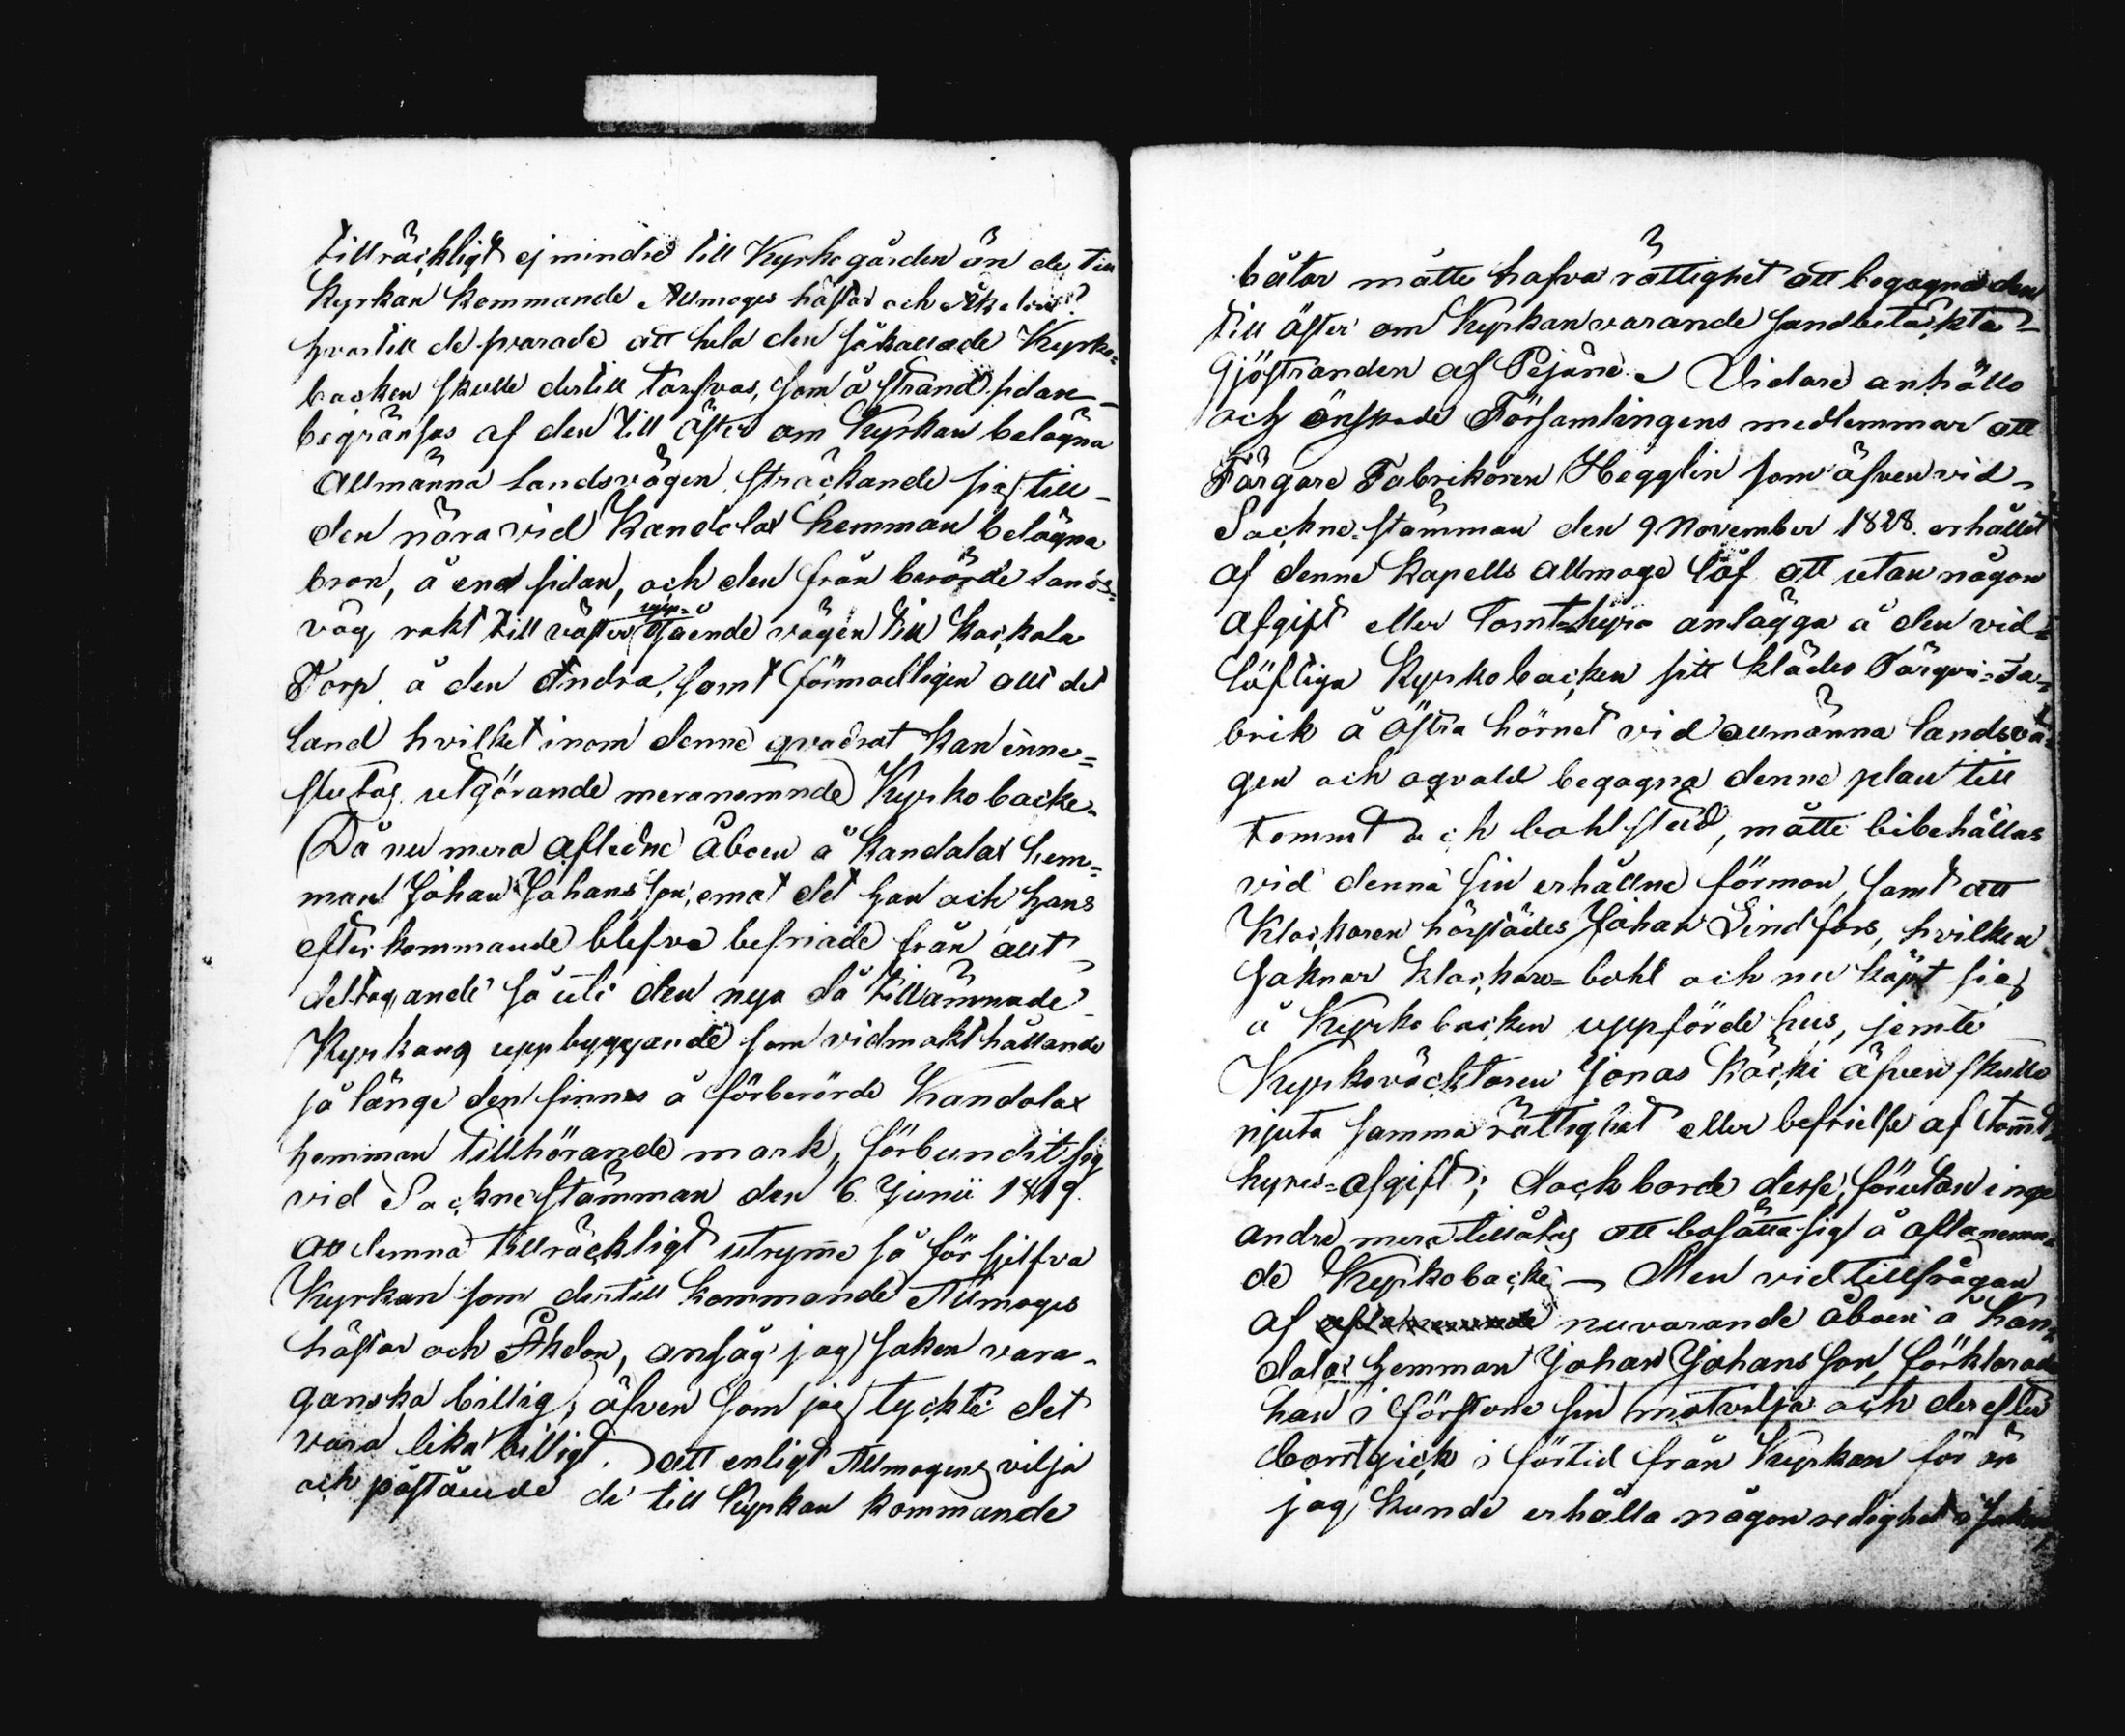 tillräckligt ej mindre till Kyrkogården än de till
Kyrkan kommande Allmoges hästar och Åkdon?
hvartill de svarade att hela den så kallade Kyrko=
backen skulle dertill tarfvas, som å strand sidan
begränsas af den till öster om Kyrkan belägna
allmänna landsvägen sträckande sig till
den nära vid Kandolax hemman belägna
bron, å ena sidan, och den från berörde lands=
väg rakt till väster upp=
gående vägen till Kackola
Torp å den andra, samt förmodligen allt det
land hvilket inom denne qvadrat kan inne=
slutas utgörande meranemnde Kyrkobacke.
Då nu mera aflidne Åboen å Kandolax hem=
man Johan Johansson, emot det han och hans
efterkommande blefve befriade från allt
deltagande så uti den nya då tillämnade
Kyrkans uppbyggande som vidmakthållande
så länge den finnes å förberörde Kandolax
hemman tillhörande mark, förbundit sig
vid Sockne stämman den 6 Junii 1819.
att lemna tillräckligt utrymme så för sjelfva
Kyrkan som dertill kommande Allmoges
hästar och Åkdon, ansåg jag saken vara
ganska billig, äfven som jag tyckte det
vara lika billigt att enligt Allmogens vilja
och påstående de till Kyrkan kommande
båtar måtte hafva rättighet att begagna den
till öster om Kyrkan varande sandbetäckta
Sjöstranden af Pejäne. Vidare anhöllo
och önskade Församlingens medlemmar att
Färgare Fabrikoren Hegglin som äfven vid
Sockne-stämman den 9 November 1828. erhållit
af denne Kapells allmoge löf att utan någon
afgift eller Tomt-hyra anlägga å den vid=
löftiga Kyrkobacken sitt klädes Färgeri=Fa=
brik å östra hörnet vid allmänna landsvä=
gen och oqvald begagna denne plan till
tommt och bohlstad, måtte bibehållas
vid denna sin erhållne förmon, samt att
Klockaren härstädes Johan Lindfors, hvilken
saknar klockare=bohl och nu köpt sig
å Kyrkobacken uppförde hus, jemte
Kyrkoväcktaren Jonas Käcki äfven skulle
njuta samma rättighet eller befrielse af tomt
hyres=afgift; dock borde desse förutan inge
andre mera tillåtas att bosätta sig å oftanemn=
de Kyrkobacke. — Men vid tillfrågan
af nuvarande åboen å Kan=
dolax hemman Johan Johansson, förklarade
han i förstone sin motvilja och derefter
bortgick i förtid från Kyrkan för än
jag kunde erhålla någon redighet i saken,